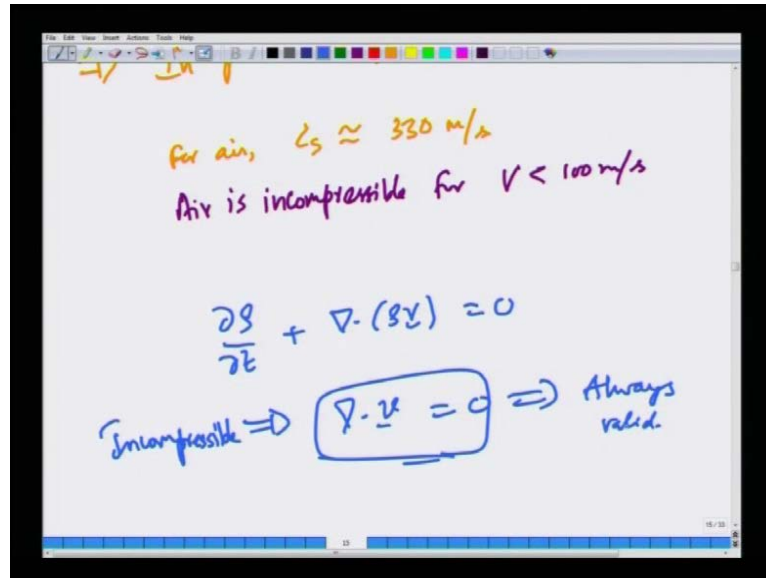 File Edit View Insert Actions Tools Help
For air, Cs ≃ 330 m/s
Air is incompressible for V < 100 m/s
∂ρ/∂t + ∇·(ρv) = 0
Incompressible ⇒ ∇·v = 0 ⇒ Always valid.
15/33
15